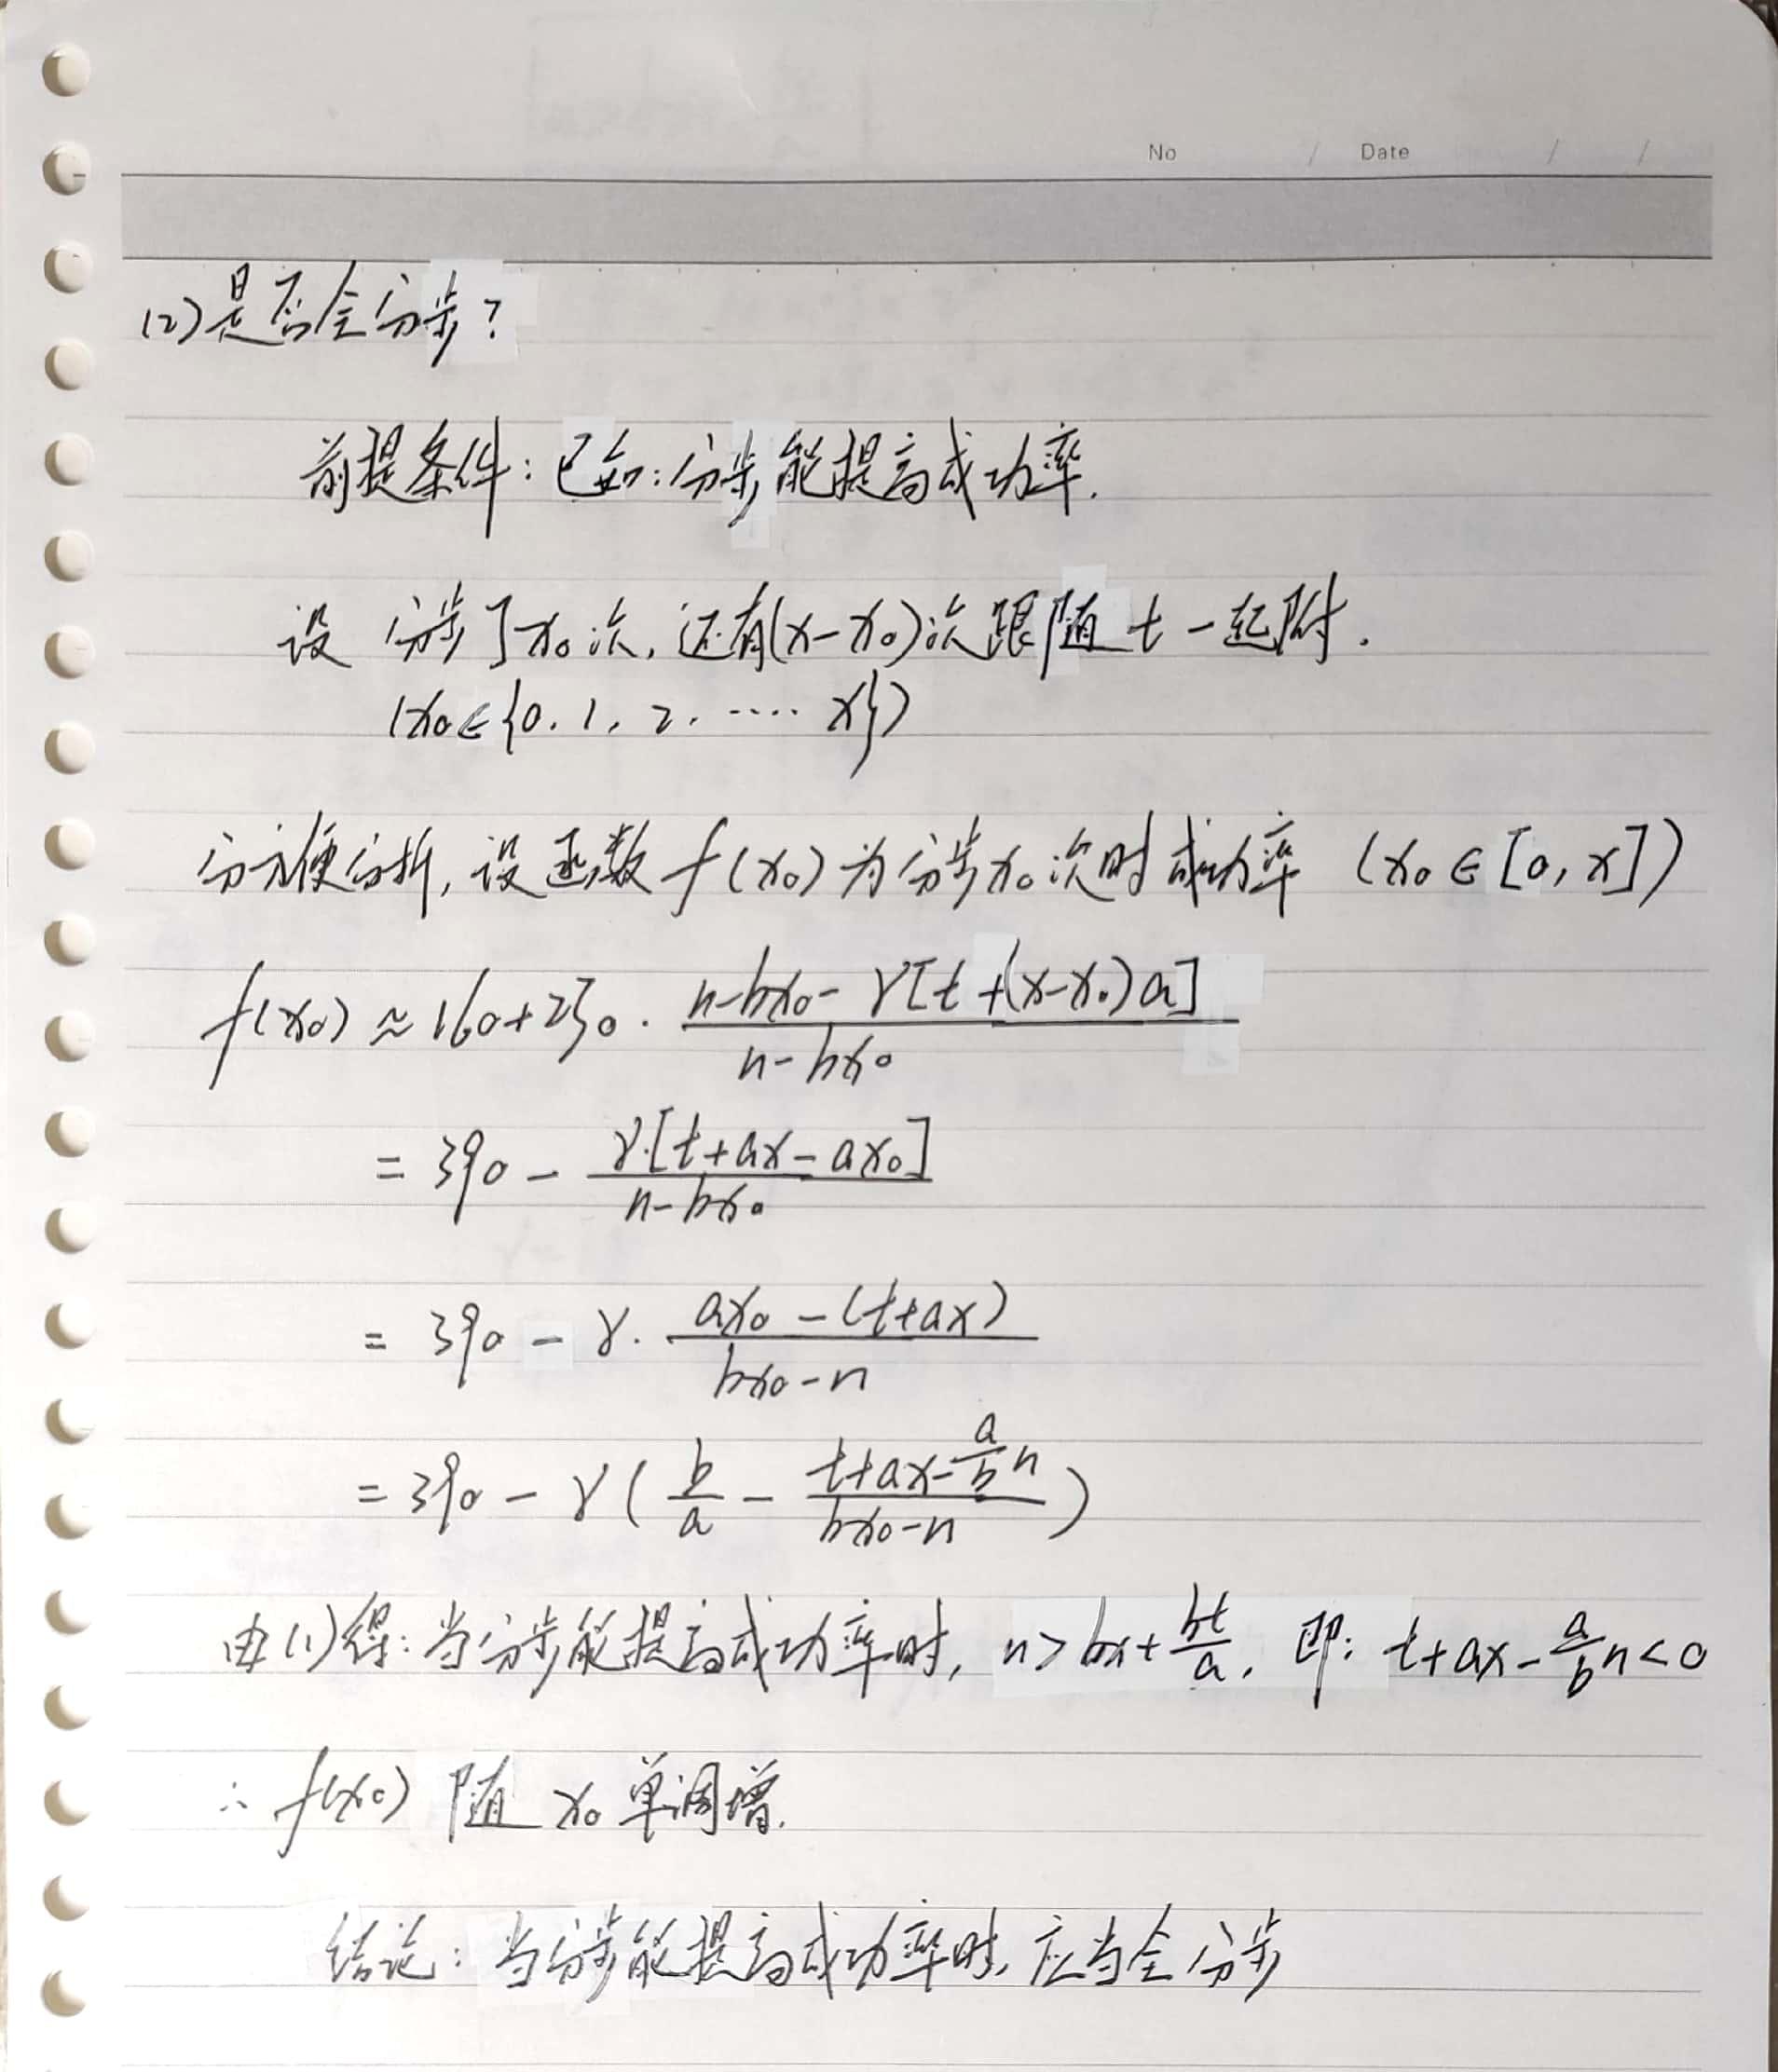 No / Date / /
(2)是否全分步?
前提条件:已知:分步能提高成功率.
设 分步了x₀次,还有(x-x₀)次跟随t一起附.
(x₀∈{0.1,2.····x})
分方便分析,设函数f(x₀)为分步x₀次时成功率 (x₀∈[0,x])
f(x₀)≈160+230·\frac{n-bx₀-γ[t+(x-x₀)a]}{n-bx₀}
=390-\frac{γ·[t+ax-ax₀]}{n-bx₀}
=390-γ·\frac{ax₀-(t+ax)}{bx₀-n}
=390-γ(\frac{b}{a}-\frac{t+ax-\frac{a}{b}n}{bx₀-n})
由(1)得:当分步能提高成功率时,n>bx+\frac{bt}{a},即:t+ax-\frac{a}{b}n<0
∴f(x₀)随x₀单调增.
结论:当分步能提高成功率时,应当全分步